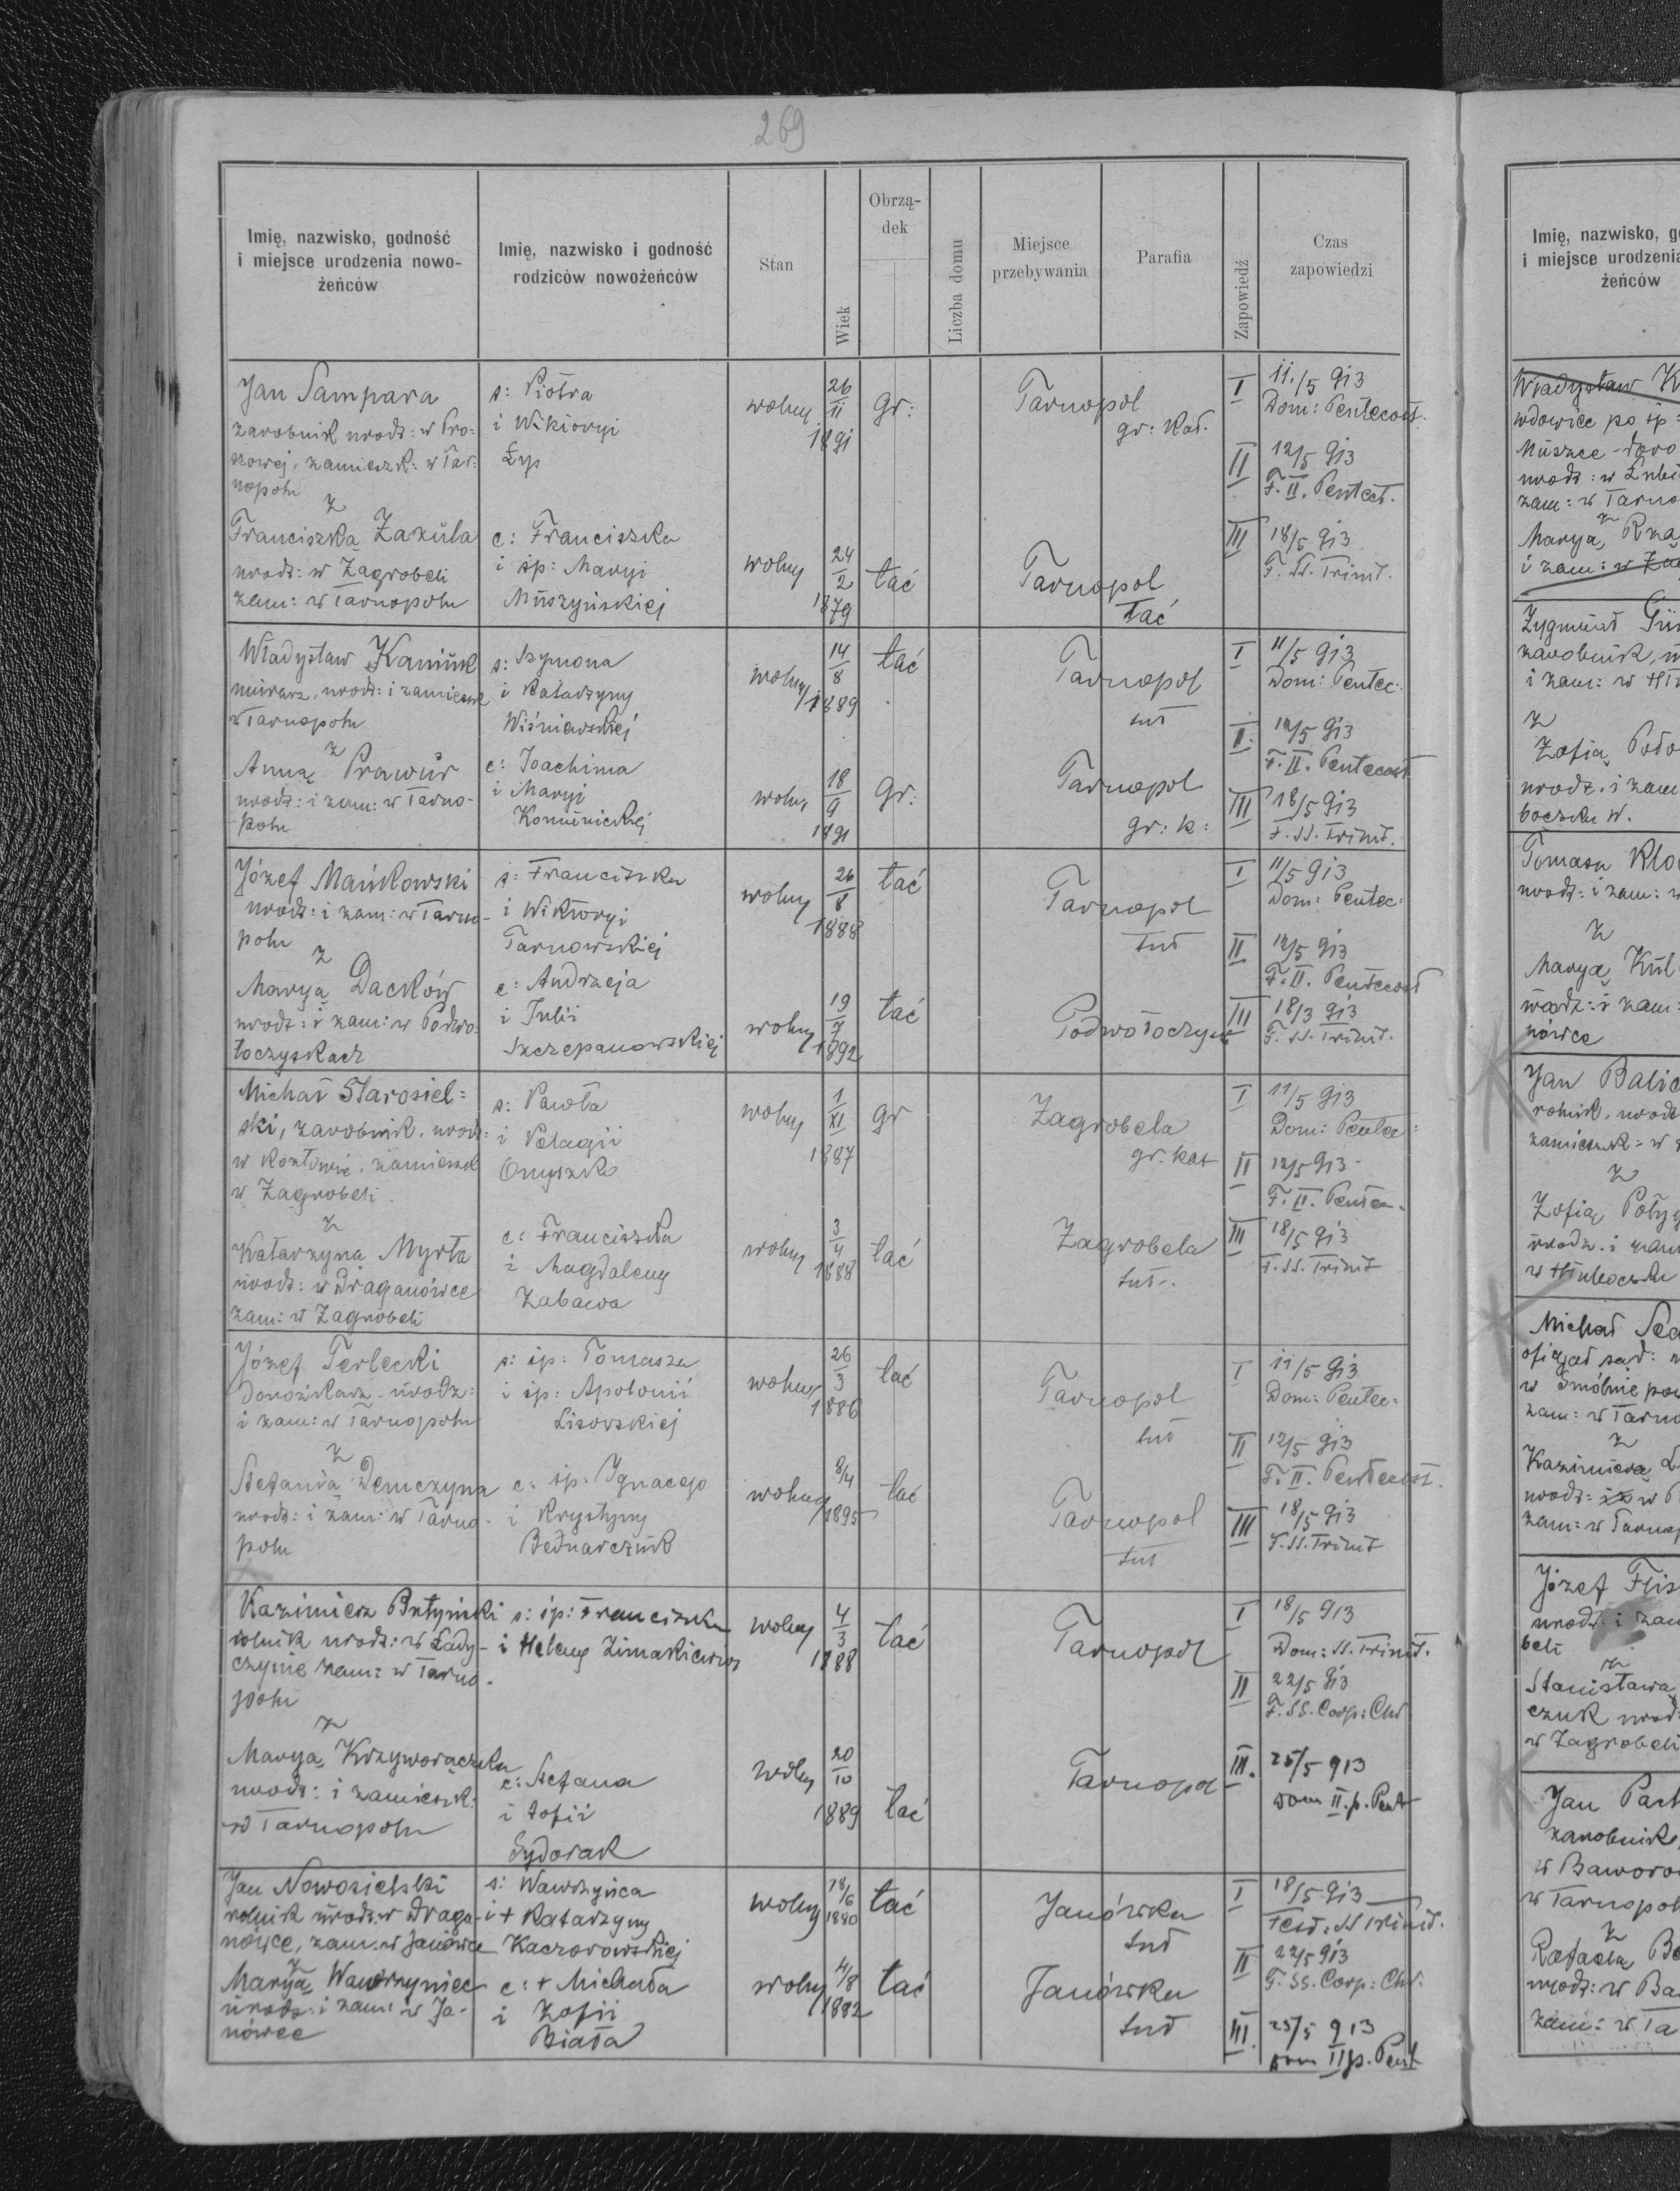 269
Imię, nazwisko, godność
i miejsce urodzenia nowo-
żeńców
Imię, nazwisko i godność
rodziców nowożeńców
Stan
Wiek
Obrzą-
dek
Liczba domu
Miejsce
przebywania
Parafia
Zapowiedź
Czas
zapowiedzi
Jan Sampara
zarobnik urodz: w Pro-
szowej, zamieszk: w Tar-
nopolu
z
Franciszką Zazula
urodz: w Zagrobeli
zam: w Tarnopolu
s: Piotra
i Wiktoryi
Łyp
c: Franciszka
i śp: Maryi
Muszyńskiej
wolny
26/11
1891
gr:
Tarnopol
gr: kat.
wolny
24/2
1879
łać
Tarnopol
łać
I 11./5 913
Dom: Pentecost.
II 12/5 913
F. II. Pentect.
III 18/5 913
F. SS. Trinit.
Władysław Kaniuk
murarz, urodz: i zamieszk
w Tarnopolu
z
Anną Prawur
urodz: i zam: w Tarno-
polu
s: Szymona
i Katarzyny
Wiśniewskiej
c: Joachima
i Maryi
wolny
14/8
1889
łać
Tarnopol
tut
wolny
18/9
1891
gr:
Tarnopol
gr: k:
I 11/5 913
Dom: Pentec:
II 12/5 913
F. II. Pentecost
III 18/5 913
F. SS. Trinit.
Józef Mańkowski
urodz: i zam: w Tarno-
polu
z
Maryą Dacków
urodz: i zam: w Podwo-
łoczyskach
s: Franciszka
i Wiktoryi
Tarnowskiej
c: Andrzeja
i Julii
Szczepanowskiej
wolny
26/8
1888
łać
Tarnopol
tut
wolny
19/7
1892
łać
I 11/5 913
Dom: Pentec:
II 12/5 913
F. II. Pentecost
III 18/3 913
F. SS. Trinit.
Michał Starosiel=
ski, zarobnik, urodz:
w Kozłowie, zamieszk
w Zagrobeli
z
Katarzyna Myrta
urodz: w Draganówce
zam: w Zagrobeli
s: Pawła
i Pelagii
Onyszko
c: Franciszka
i Magdaleny
Zabawa
wolny
1/XI
1887
gr
Zagrobela
gr. kat
wolny
3/4
1888
łać
Zagrobela
tut.
I 11/5 913
Dom: Pentec:
II 12/5 913
F. II. Pentec.
III 18/5 913
F. SS. Trinit
Józef Terlecki
Dorożkarz urodz:
i zam: w Tarnopolu
z
Stefanią Demczyna
urodz: i zam: w Tarno-
polu
s: śp: Tomasza
i śp: Apolonii
Lisowskiej
c: śp: Ignacego
i Krystyny
Bednarczuk
wolny
26/3
1886
łać
Tarnopol
tut
wolny
8/4
1895
łać
Tarnopol
tut
I 11/5 913
Dom: Pentec:
II 12/5 913
F. II. Pentecost.
III 18/5 913
F. SS. Trinit
Kazimierz Putyński
rolnik urodz: w Łady-
czynie zam: w Tarno-
polu
z
Maryą Krzyworączka
urodz: i zamieszk:
w Tarnopolu
s: śp: Franciszka
i Heleny
c: Stefana
i Zofii
Sydorak
wolny
4/3
1888
łać
Tarnopol
wolny
20/10
1889
łać
Tarnopol
I 18/5 913
Dom: SS. Trinit.
II 22/5 913
F. SS. Corp: Chr
III. 25/5 913
Dom II. p. Pent
Jan Nowosielski
rolnik urodz: w Draga-
nówce, zam: w Janówce
z
Maryą Wawrzyniec
urodz: i zam: w Ja-
nówce
s: Wawrzyńca
i + Katarzyny
Kaczorowskiej
c: + Michała
i Zofii
Biała
wolny
18/6
1880
łać
Janówka
tut
wolny
4/8
1882
łać
Janówka
tut
I 18/5 913
Fest: SS Trinit.
II 22/5 913
F. SS. Corp: Chr:
III. 25/5 913
Dom II p. Pent
Imię, nazwisko, g
i miejsce urodzenia
żeńców
Władysław K
wdowiec po śp:
zam: w Tarno
z
Maryą
Zygmunt
zarobnik, u
i zam: w
z
Zofią
urodz. i zam
Tomasz
urodz: i zam: w
z
Maryą Kul
urodz: i zam:
nówce
Jan Balic
rolnik. urodz
zamieszk: w
z
Zofią
urodz. i zam
Michał
zam: w Tarno
z
Kazimierą
zam: w Tarnop
Józef
urodz: i zam
beli
z
Stanisława
czuk urodz
w Zagrobeli
Jan
zarobnik,
w Baworo
w Tarnopol
z
Rafaelą
urodz: w Ba
zam: w Ta